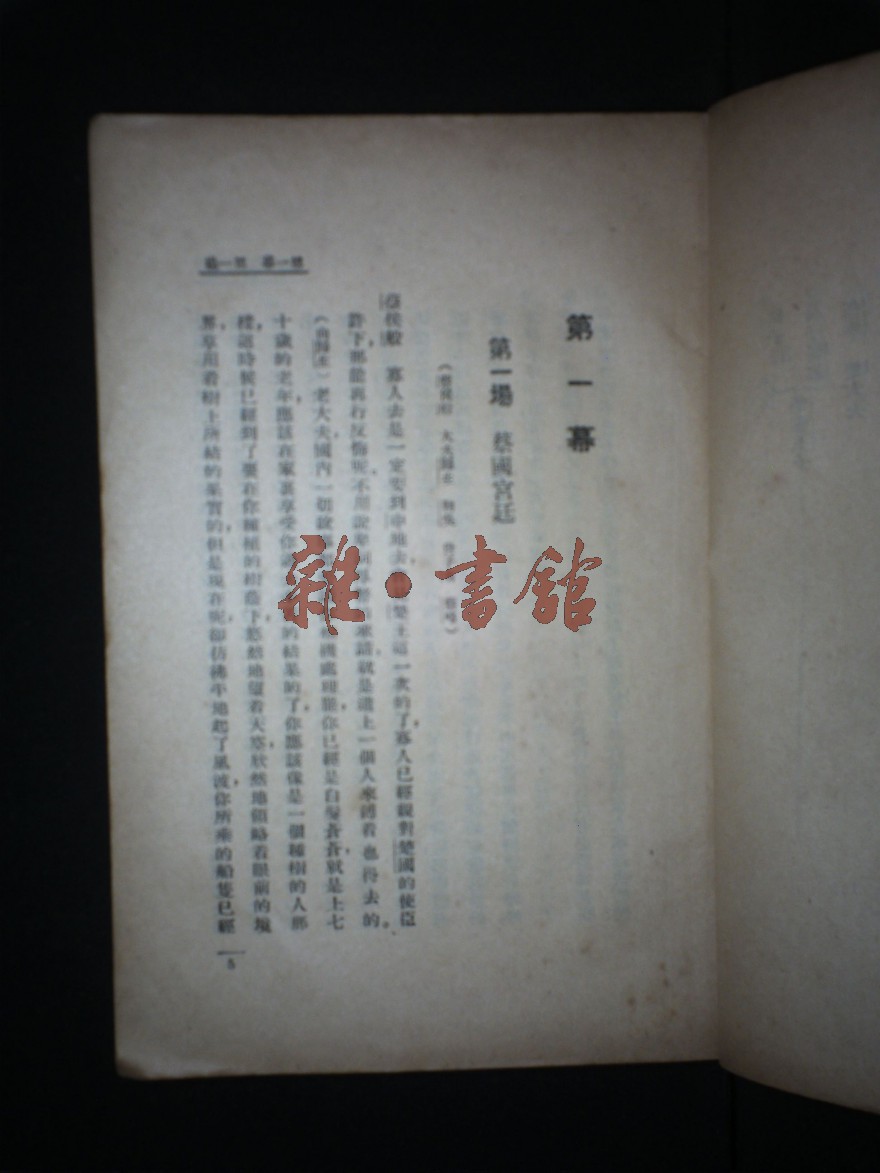 第一幕
第一場 蔡國宮廷
蔡侯般 寡人去是一定要到申地去 楚王這一次的了，寡人已經親對楚國的使臣
許下，那能再行反悔呢 不用說 承諾，就是道上一個人來 着，也得去的。
（向歸生）老大夫，國內一切 處理，你已經是白髮蒼蒼，就是上七
十歲的老年，應該在家裏享受你 的結果的了，你應該像是一個種樹的人那
樣，這時候已經到了要在你種植的樹蔭下，悠然地望着天空，欣然地領略着眼前的境
界，享用着樹上所結的果實的，但是現在呢，卻彷彿平地起了風波，你所乘的船隻已經
第一幕 第一場
5
雜·書館